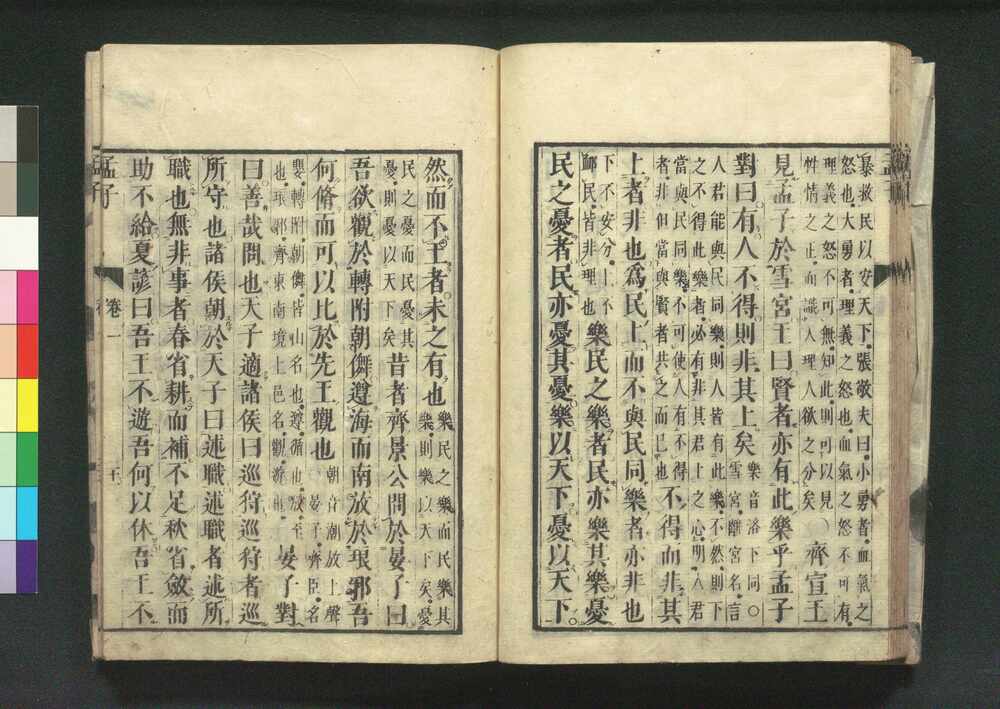 暴救民以安天下張敬夫曰小勇者血氣之
怒也大勇者理義之怒也血氣之怒不可有
理義之怒不可無知此則可以見
性情之正而識人理人欲之分矣
○齊宣王
見孟子於雪宮王曰賢者亦有此樂乎孟子
對曰有人不得則非其上矣
樂音洛下同○
雪宮離宮名言
人君能與民同樂則人皆有此樂不然則下
之不得此樂者必有非其君上之心明人君
當與民同樂不可使人有不得
者非但當與賢者共之而已也
不得而非其
上者非也爲民上而不與民同樂者亦非也
下不安分上不
卹民皆非理也
樂民之樂者民亦樂其樂憂
民之憂者民亦憂其憂樂以天下憂以天下
然而不王者未之有也
樂民之樂而民樂其
樂則樂以天下矣憂
民之憂而民憂其
憂則憂以天下矣
昔者齊景公問於晏子曰
吾欲觀於轉附朝儛遵海而南放於琅邪吾
何脩而可以比於先王觀也
朝音潮放上聲
晏子齊臣名
嬰轉附朝儛皆山名也遵循也放至
也琅邪齊東南境上邑名觀游也
晏子對
曰善哉問也天子適諸侯曰巡狩巡狩者巡
所守也諸侯朝於天子曰述職述職者述所
職也無非事者春省耕而補不足秋省斂而
助不給夏諺曰吾王不遊吾何以休吾王不
孟子
卷一
十一